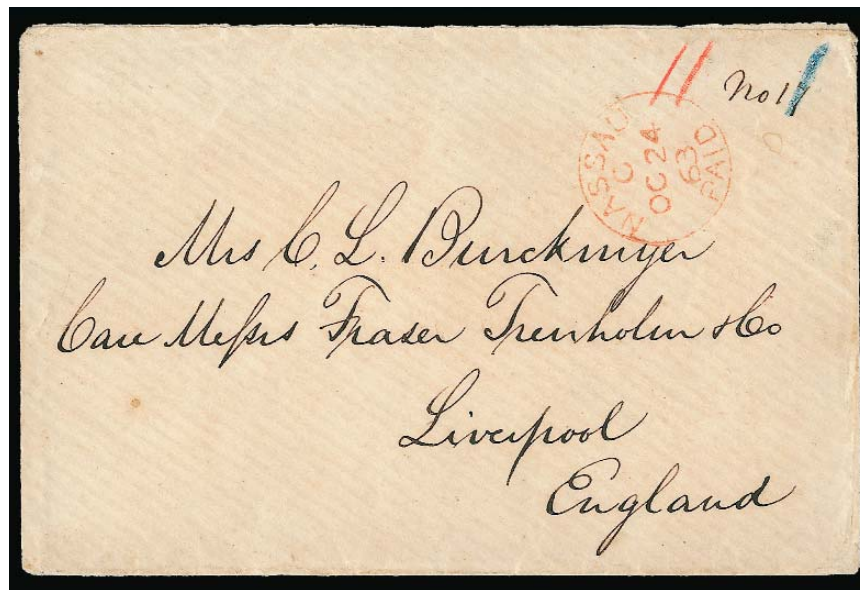 No 11
NASSAU
C
OC 24
63
PAID
Mrs C. L. Burckmyer
Care Messrs Fraser Trenholm & Co
Liverpool
England